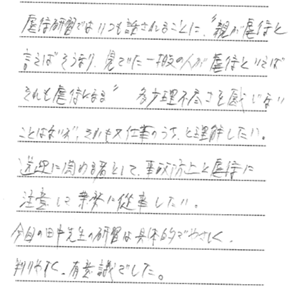 虐待研修ではいつも話されることに、"親が虐待と
言えばそうなり、見てた一般の人が虐待といえば
それも虐待となる" 多少理不尽さを感じない
ことはないが、それも又仕事のうち、と理解したい。
に関わる者として、事故防止と虐待に
注意して 従事したい。
今日の田中先生の研修は具体的でやさしく、
判りやすく、有意議でした。